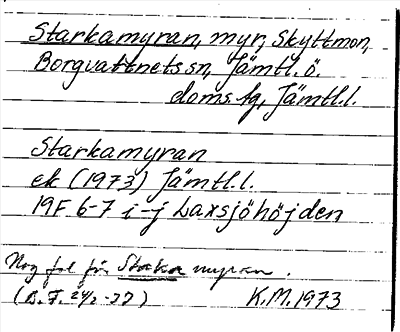 Starkamyran, myr, Skyttmon,
Borgvattnets sn, Jämtl. ö.
doms.ag, Jämtl.l.
Starkamyran
ek (1973) Jämtl.l.
19F 6-7 i-j Laxsjöhöjden
Nog fel för Storka myran.
(B. F. 24/2 -77) K.M. 1973